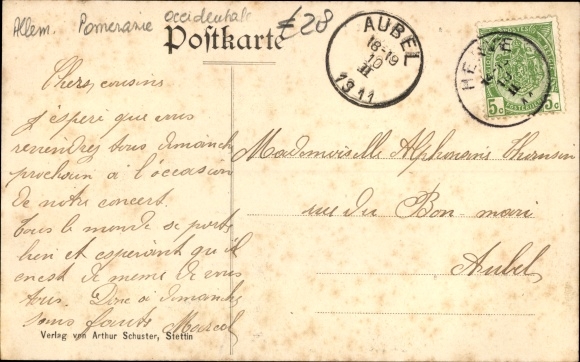 Allem. Pomeranie occidentale
£28
Postkarte
AUBEL
18-19
10
II
1911
HERVE
5c 5c
Chers cousins
J'espère que vous
reviendrez tous dimanche
prochain à l'occasion
de notre concert.
Tous le monde se porte
bien et esperant qu'il
en est de meme de vous
tous. Donc à dimanche
sans faute Marcel
Mademoiselle Alphonsine
rue du Bon-mari
Aubel
Verlag von Arthur Schuster, Stettin